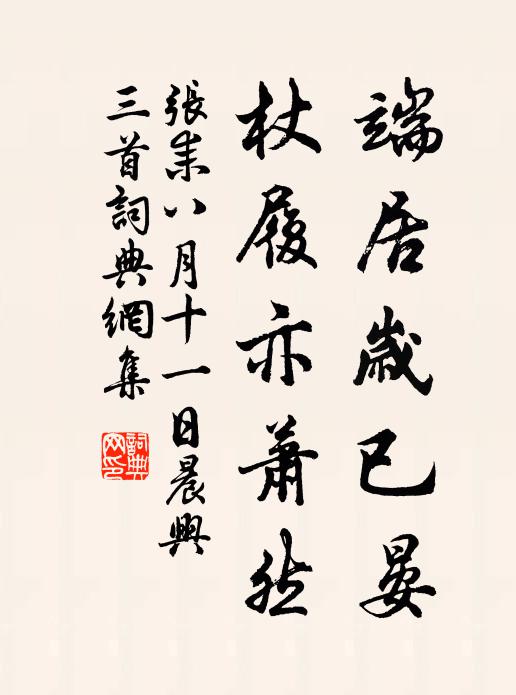 端居歲已晏
杖履亦蕭然
張耒八月十一日晨興
三首詞典網集
詞典網印